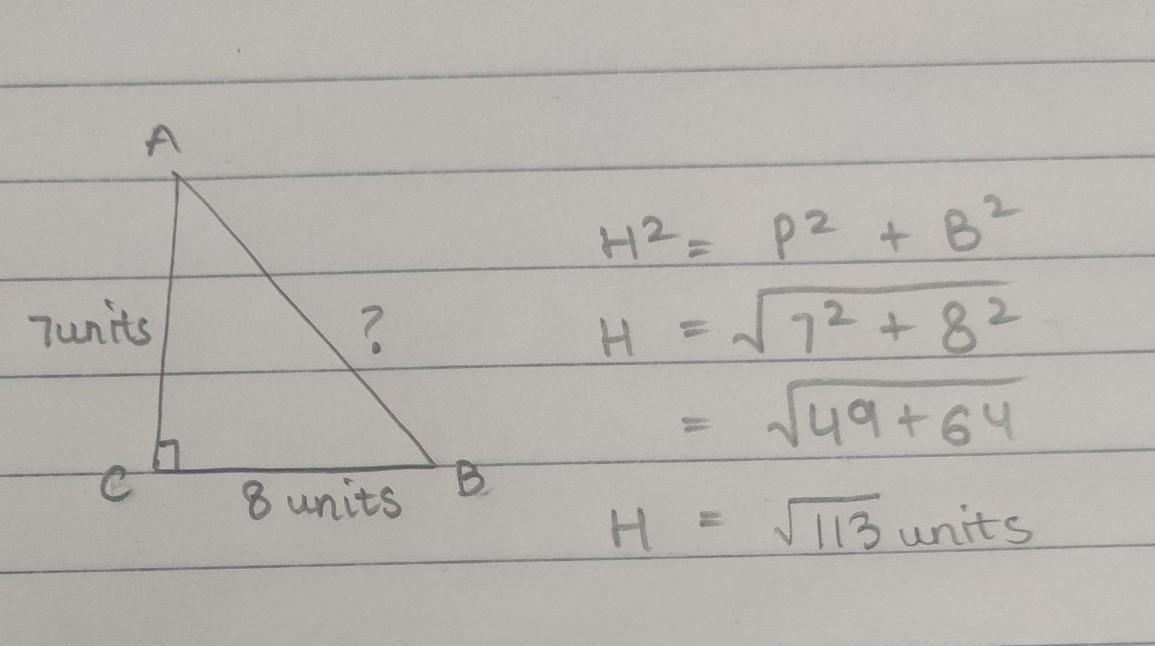 A
7units
?
C
8 units
B
H² = P² + B²
H = √7² + 8²
= √49 + 64
H = √113 units